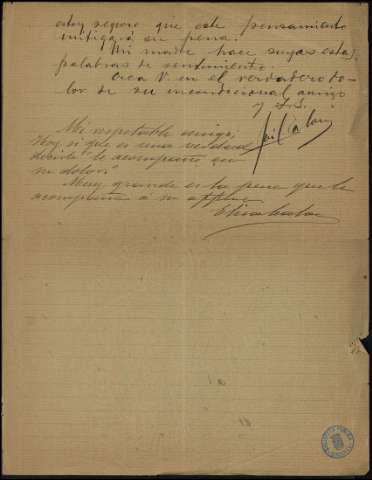 estoy seguro que este pensamiento
mitigará su pena.
Mi madre hace suyas estas
palabras de sentimiento.
Crea V. en el verdadero do-
lor de su incondicional amigo
y S.S.
Mi respetable amiga;
Hoy si que es una verdad
decirle "le acompaño en
su dolor"
Muy grande es la pena que le
acompaña á su affma